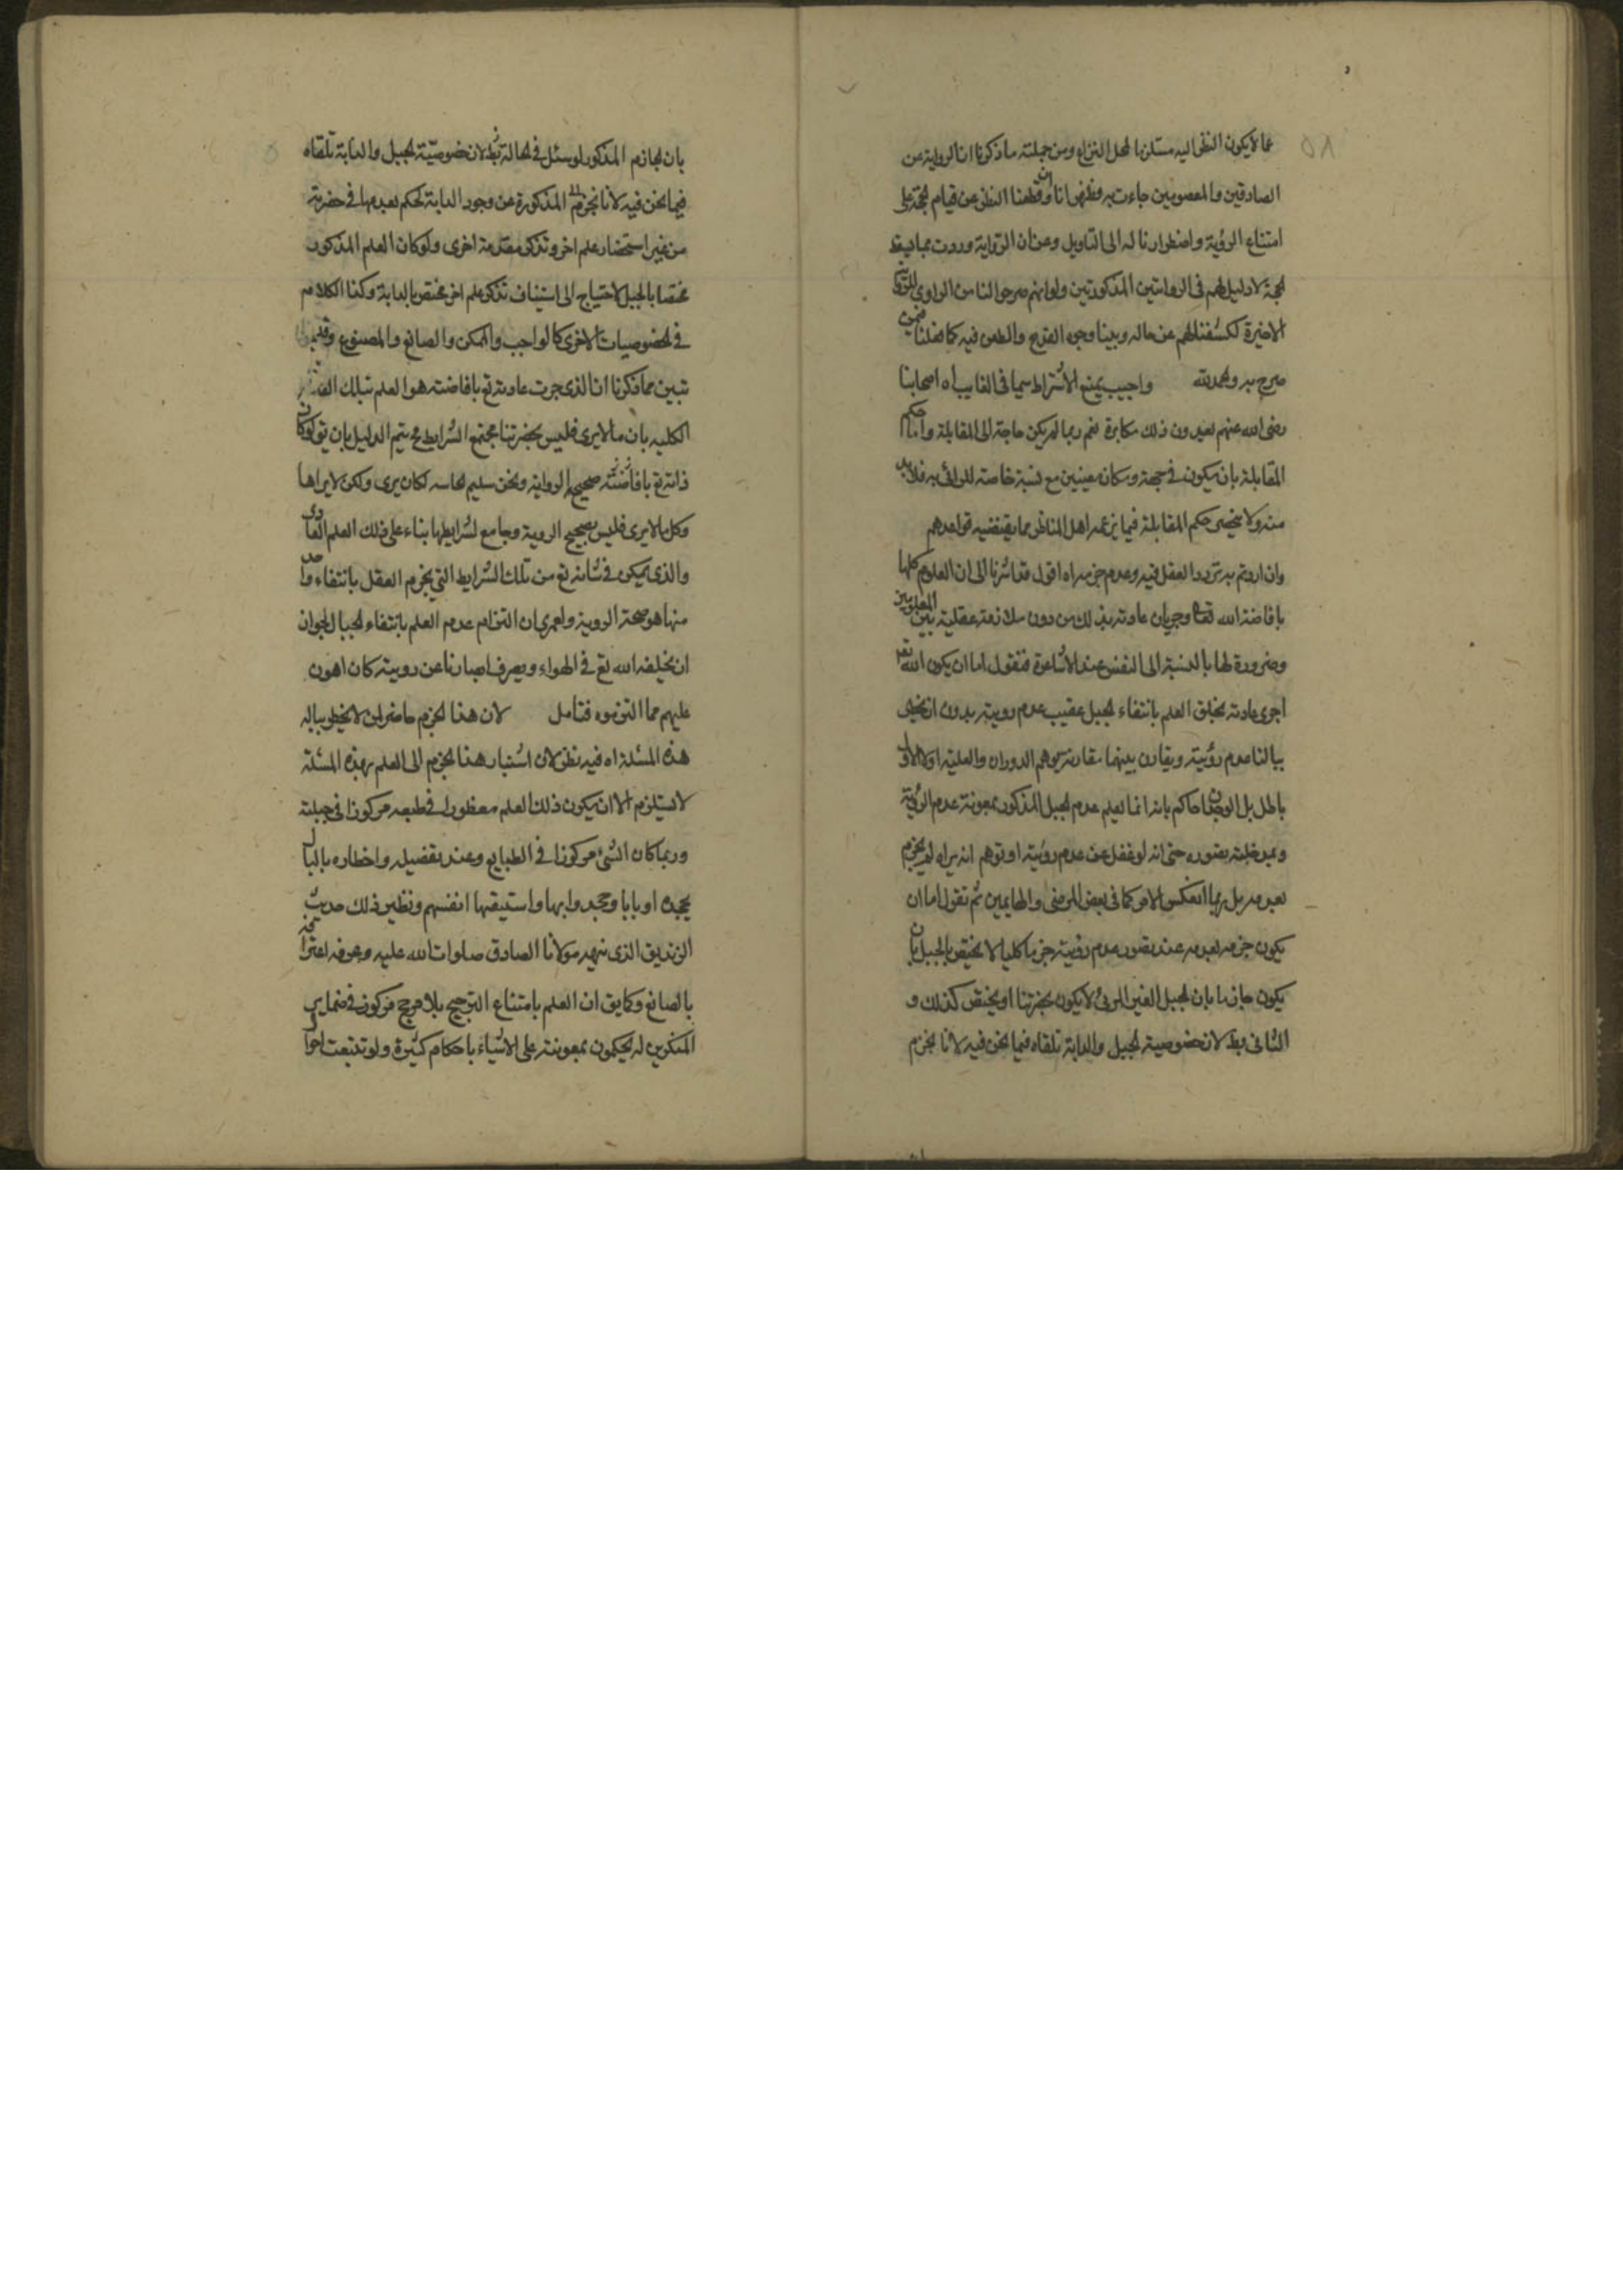 مما لا يكون النظر اليه مستلزما لمحل النزاع ومن جملته ما ذكرنا ان الرواية عن
الصادقين والمعصومين جاءت به وظهر انا لو قطعنا النظر عن قيام الحجة على
امتناع الرؤية واضطرارنا له الى التاويل وعن ان الرواية وردت بما يسقط
الحجة لا دليل لهم فى الروايتين المذكورتين ولو انهم صرحوا لنا من الراوى للرواية
الاخيرة لكشفنا لهم عن حاله وبينا وجوه القدح والطعن فيه كما فعلنا فيمن
صرح به والحمد لله واجيب بمنع الاشتراط سيما فى الغايب اه اصحابنا
رضى الله عنهم يعدون ذلك مكابرة نعم ربما لم يكن حاجة الى المقابلة واما حكم
المقابلة بان يكون فى جهة ومكان معينين مع نسبة خاصة للرائى به فلا بد
منه ولا يخفى حكم المقابلة فيما زعمه اهل المناظر مما يقتضيه قواعدهم
وان اردتم به تردد العقل فيه وعدم جزمه اه اقول قد اشرنا الى ان العلوم كلها
بافاضة الله تعالى وجريان عادته بذلك من دون ملازمة عقلية بين المعلومين
وضرورة لها بالنسبة الى النفس عند الاشاعرة فنقول اما ان يكون الله تعالى
اجرى عادته بخلق العلم بانتفاء الجبل عقيب عدم رويته بدون ان يخطر
ببالنا عدم رؤيته ويقارن بينهما مقارنة يتوهم الدوران والعلية او لا الاول
باطل بل الوجدان حاكم بانه انما يعلم عدم الجبل المذكور بمعونة عدم الرؤية
وبمدخلية تصوره حتى انه لو غفل عن عدم رؤيته او توهم انه يراه لم يجزم
بعدمه بل ربما انعكس الامر كما فى بعض المرضى والهايمين ثم نقول اما ان
يكون جزمه بعدمه عند تصور عدم رؤيته جزما كليا لا يختص بالجبل بان
يكون جازما بان الجبل الغير المرئى لا يكون بحضرتنا او يختص كذلك و
الثانى بط لان خصوصية الجبل والدابة تلقاه فيما نحن فيه لانا نجزم
بان الجازم المذكور لو سئل فى الحالة بط لان خصوصية الجبل والدابة تلقاه
فيما نحن فيه لانا نجزم المذكورة عن وجود الدابة لحكم بعدمها فى حضرته
من غير استحضار علم اخر وتذكر مقدمة اخرى ولو كان العلم المذكور
مختصا بالجبل لاحتياج الى استيناف تذكر علم اخر مختص بالدابة وكذا الكلام
فى الخصوصيات الاخرى كالواجب والممكن والصانع والمصنوع وغيرها
تبين مما ذكرنا ان الذى جرت عادته تع بافاضته هو العلم بتلك
الكلية بان ما لا يرى فليس بحضرتنا مجتمع الشرايط فح يتم الدليل بان يق لو كان
ذاته تع بافاضته صحيح الرواية ونحن سليم الحاسه لكان يرى ولكن لا يراها
وكل ما لا يرى فليس بصحيح الروية وجامع لشرايطها بناء على ذلك العلم العادى
والذى يمكن فى شانه تع من تلك الشرايط التى يجزم العقل بانتفاء واحد
منها هو صحة الروية ولعمرى ان التزام عدم العلم بانتفاء الجبال لجواز
ان يخلقه الله تع فى الهواء ويصرف ابصارنا عن رويته كان اهون
عليهم مما التزموه فتامل لان هذا الجزم حاضر لمن لا يخطر بباله
هذه المسئلة اه فيه نظر لان استناد هذا الجزم الى العلم بهذه المسئلة
لا يستلزم الا ان يكون ذلك العلم مفطورا فى طبعه مركوزا فى جبلته
وربما كان الشئ مركوزا فى الطبايع وعند تفصيله واخطاره بالبال
يجده اوبابا وجحدوا بها واستيقنها انفسهم ونظير ذلك حديث
الزنديق الذى نبهه مولانا الصادق صلوات الله عليه وعرفه اعترافه
بالصانع وكما يق ان العلم بامتناع الترجيح بلا مرجح مركوز فى ضماير
المنكرين له يحكمون بمعونته على الاشياء باحكام كثيرة ولو تتبعت احوال